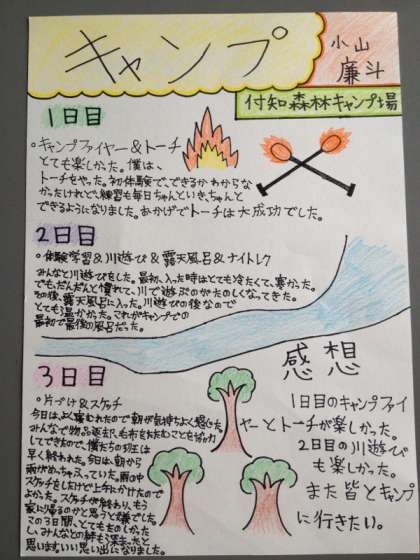 キャンプ
小山
廉斗
付知森林キャンプ場
1日目
。キャンプファイヤー&トーチ
とても楽しかった。僕は、
トーチをやった。初体験で、できるかわからな
かったけれど、練習も毎日ちゃんといき、ちゃんと
できるようになりました。おかげでトーチは大成功でした。
2日目
。体験学習&川遊び&露天風呂&ナイトレク
みんなと川遊びをした。最初、入った時はとても冷たくて、寒かった。
でも、だんだんと慣れて、川で遊ぶのがたのしくなってきた。
その後、露天風呂に入った。川遊びの後なので
とても温かかった。これがキャンプでの
最初で最後の風呂だった。
3日目
。片づけ&スケッチ
今日は、よく寝むれたので朝が気持ちよく感じた。
みんなで物品返却、毛布をたたむことを協力
してできたので、僕たちの班は
早く終われた。今日は、朝から
雨がめっちゃふっていた。雨の中
スケッチをしたけど上手にかけたので
よかった。スケッチが終わり、もう
家に帰るのかと思うと嫌でした。
この3日間、とてもものしかった
し、みんなとの絆も深まったと
思いますいい思い出になりました。
感想
1日目のキャンプファイ
ヤーとトーチが楽しかった。
2日目の川遊び
も楽しかった。
また皆とキャンプ
に行きたい。